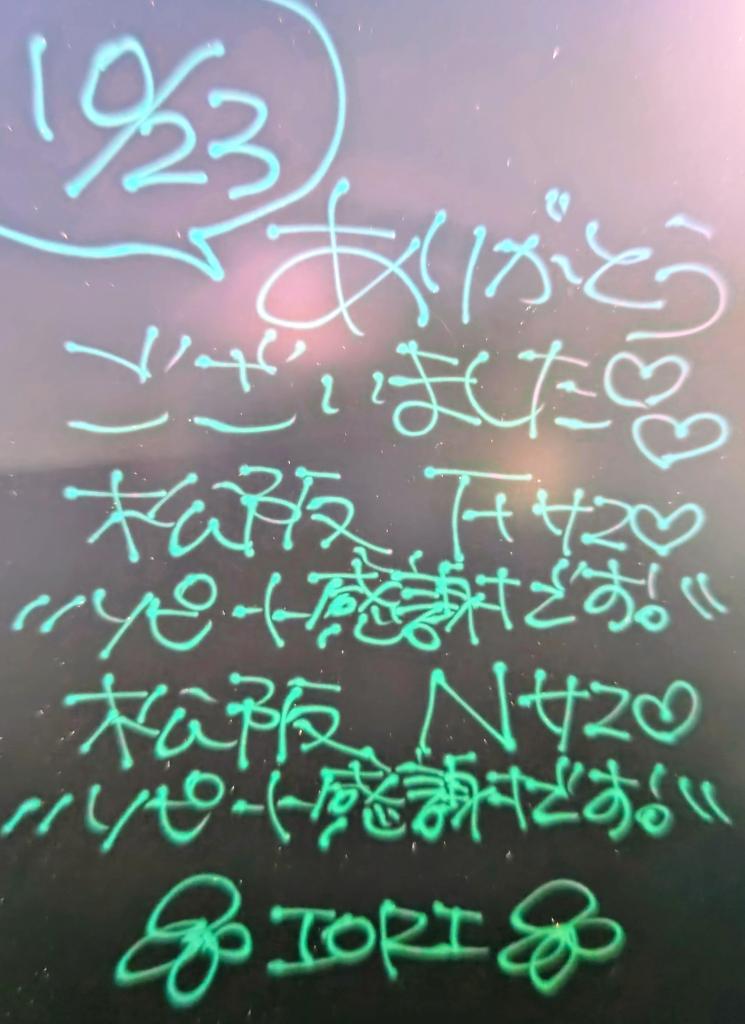 10/23
ありがとう
ございました♡♡
松阪 Tサマ♡
〃リピート感謝です!〃
松阪 Nサマ♡
〃リピート感謝です!〃
IORI